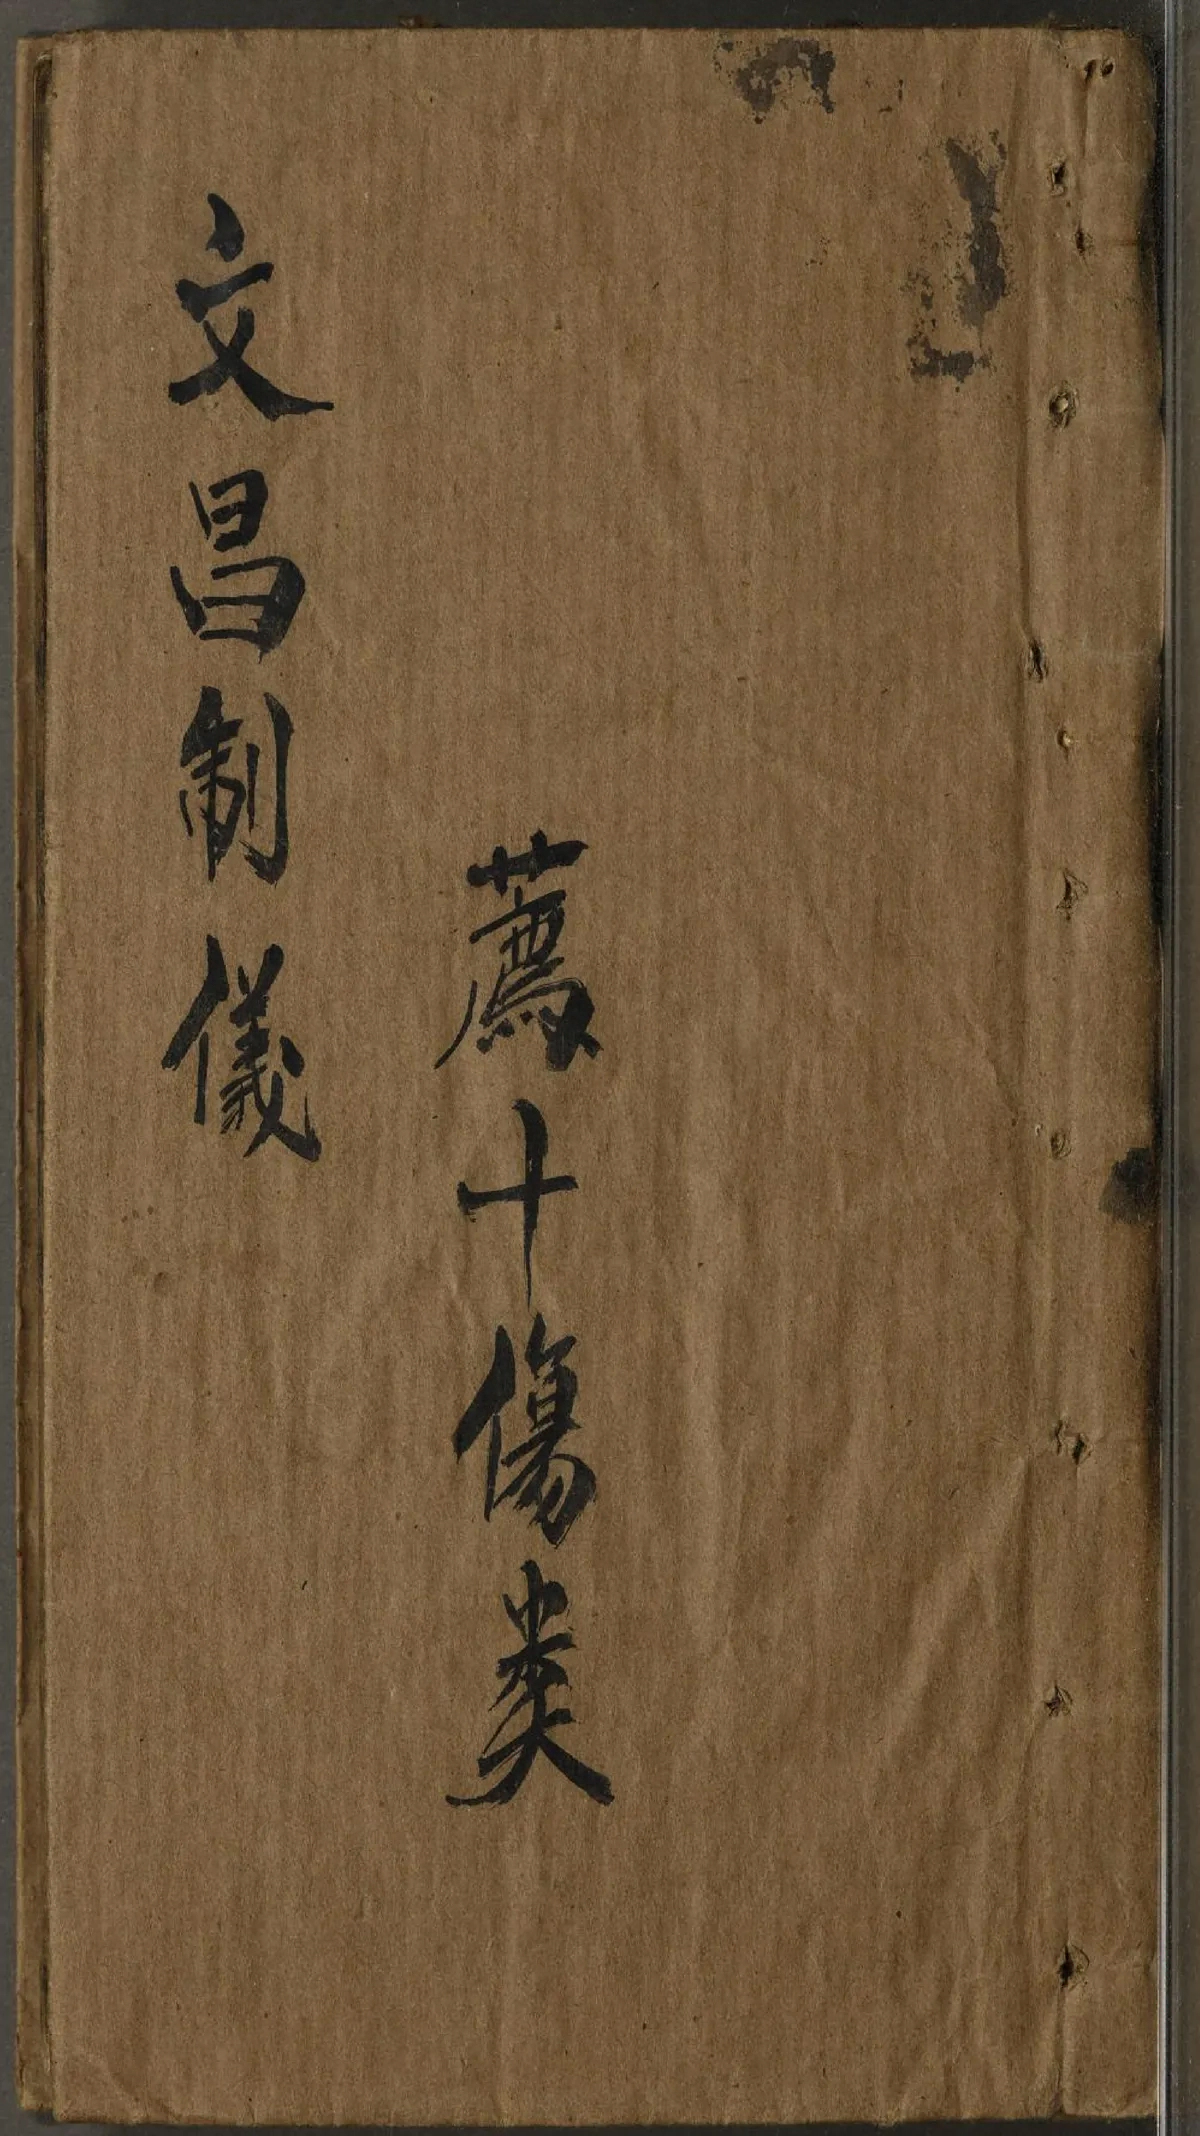 薦十傷类
文昌制儀